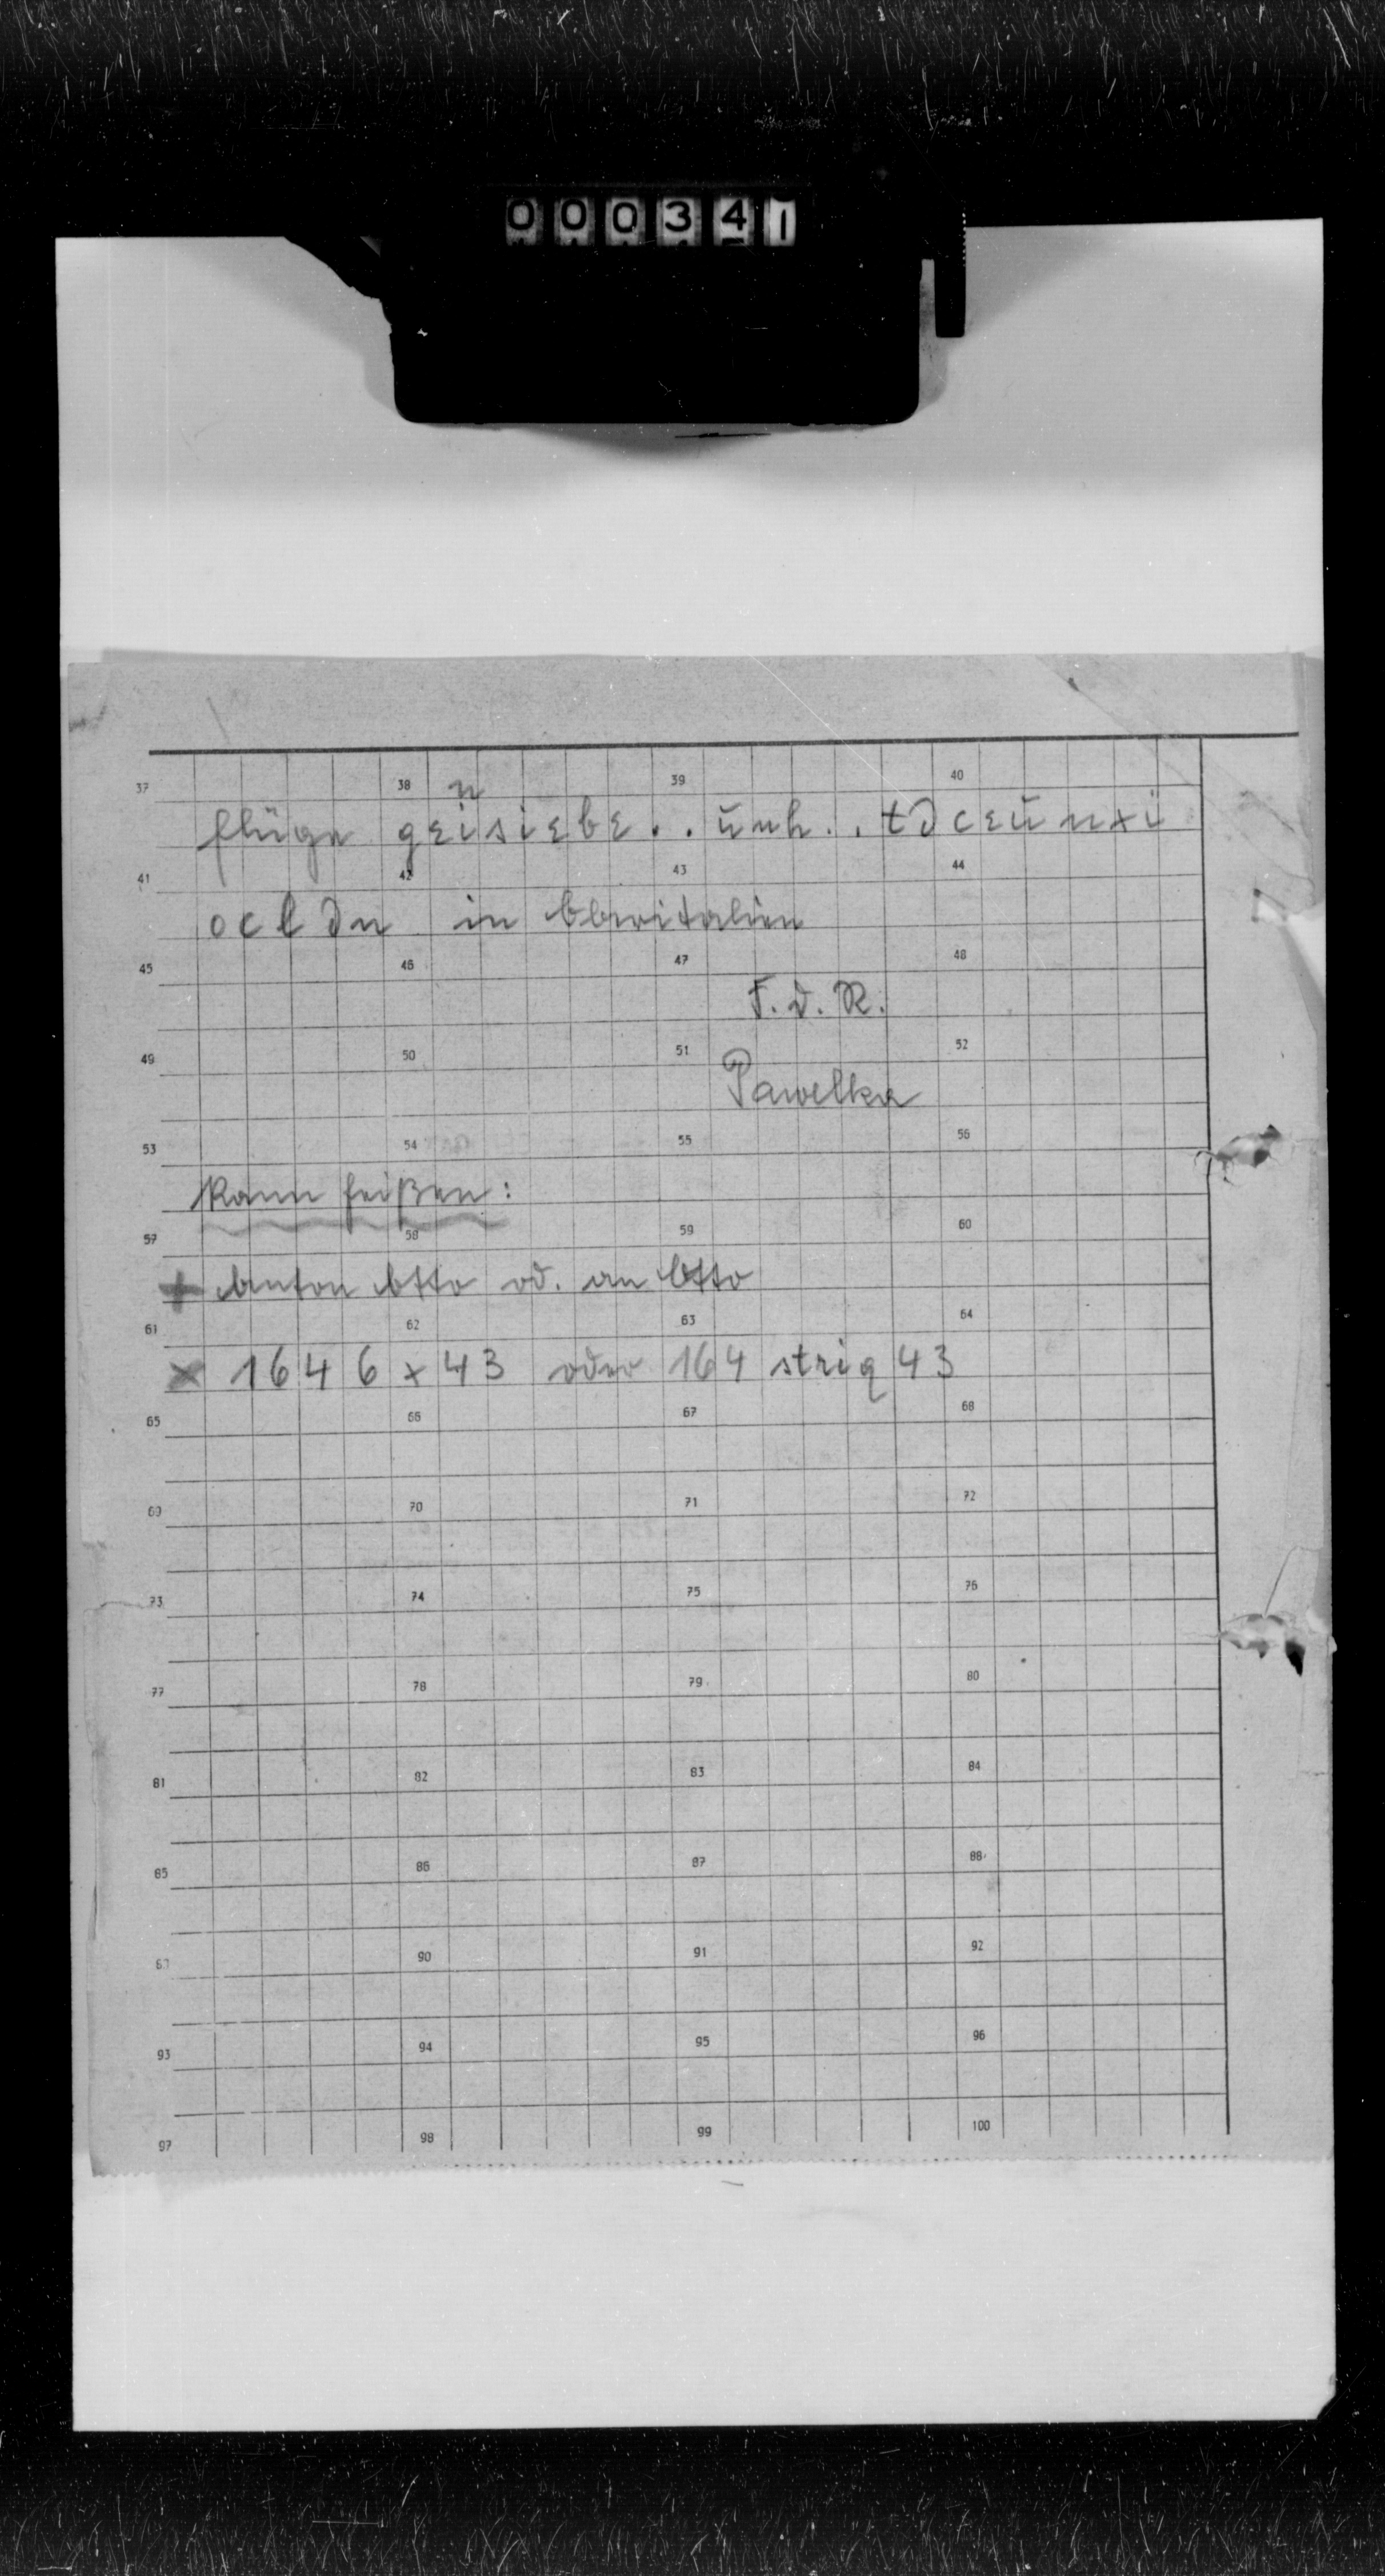 000341
37 38 39 40
n
flüge geisiebe . . unh . . tdceunxi
41 42 43 44
ocldn in Oberitalien
45 46 47 48
F. d. R.
49 50 51 52
Pawelka
53 54 55 56
Kann heißen:
57 58 59 60
+ Anton Otto od. an Otto
61 62 63 64
x 1646x43 oder 164 striq 43
65 66 67 68
69 70 71 72
73 74 75 76
77 78 79 80
81 82 83 84
85 86 87 88
90 91 92
93 94 95 96
97 98 99 100